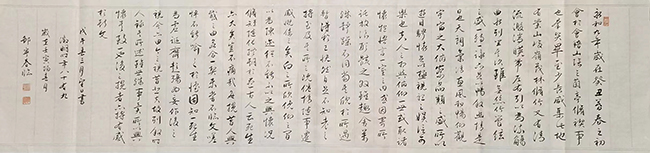 永和九年歲在癸丑暮春之初
會於會稽山陰之蘭亭修禊事
也羣賢畢至少長咸集此地
有崇山峻嶺茂林修竹又有清
流激湍映帶左右引以為流觴
曲水列坐其次雖無絲竹管弦
之盛一觴一詠亦足以暢敘幽情
是日也天朗氣清惠風和暢仰觀
宇宙之大俯察品類之盛所以
遊目騁懷足以極視聽之娛信可
樂也夫人之相與俯仰一世或取諸
懷抱悟言一室之內或因寄所
託放浪形骸之外雖趣舍萬
殊靜躁不同當其欣於所遇
暫得於己快然自足不知老之
將至及其所之既惓情隨事遷
感慨係之矣向之所欣俛仰之間
以為陳迹猶不能不以之興懷況
脩短隨化終期於盡古人云死生
亦大矣豈不痛哉每攬昔人興
感之由若合一契未嘗不臨文嗟
悼不能喻之於懷固知一死生
為虛誕齊彭殤為妄作後之
視今亦由今之視昔悲夫故列敘時
人錄其所述雖世殊事異所以興
懷其致一也後之攬者亦將有感
於斯文